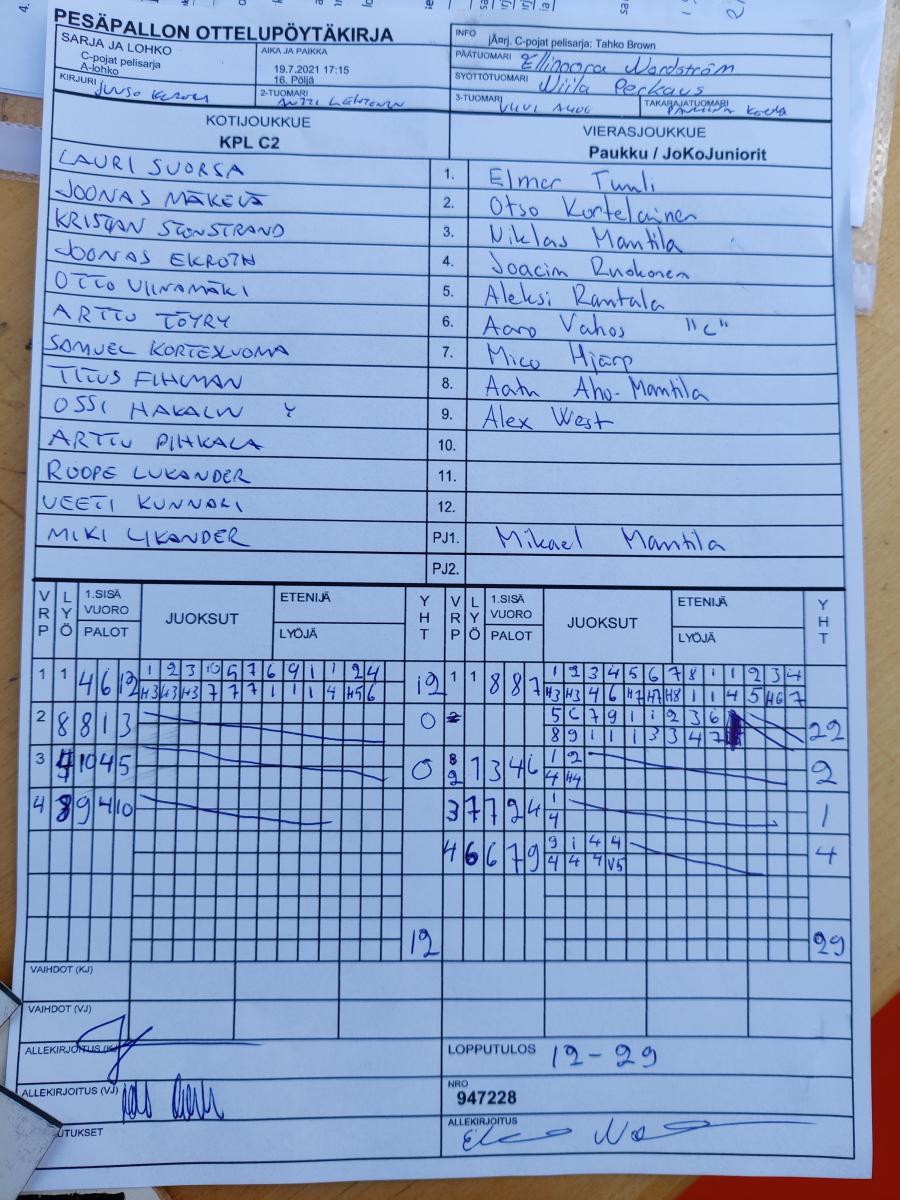 PESÄPALLON OTTELUPÖYTÄKIRJA
SARJA JA LOHKO
C-pojat pelisarja
A-lohko
AIKA JA PAIKKA
19.7.2021 17:15
16. Pöljä
INFO jÄ¤rj. C-pojat pelisarja: Tahko Brown
PÄÄTUOMARI Ellinoora Nordström
SYÖTTÖTUOMARI Niila Perkaus
KIRJURI
2-TUOMARI ANTTI LEHTONEN
3-TUOMARI
TAKARAJATUOMARI
KOTIJOUKKUE
KPL C2
VIERASJOUKKUE
Paukku / JoKoJuniorit
LAURI SUORSA 1. Elmer Tunli
JOONAS MÄKELÄ 2. Otso Kortelainen
KRISTIAN 3. Niklas Mantila
JOONAS EKROTH 4. Joacim Ruokonen
OTTO VIINAMÄKI 5. Aleksi Rantala
ARTTU TÖYRY 6. Aaro Vahos "C"
SAMUEL KORTEXUOMA 7. Mico Hjerp
TITUS FIHLMAN 8. Aatu Aho-Mantila
OSSI HAKALIN Y 9. Alex West
ARTTU PIHKALA 10.
ROOPE LUKANDER 11.
VEETI KUNNARI 12.
MIKI LIKANDER PJ1. Mikael Mantila
PJ2.
VRP LYÖ 1.SISÄ VUORO PALOT JUOKSUT ETENIJÄ LYÖJÄ YHT VRP LYÖ 1.SISÄ VUORO PALOT JUOKSUT ETENIJÄ LYÖJÄ YHT
1 1 4 6 12 1 2 3 10 5 7 6 9 1 1 2 4 12 1 1 8 8 7 1 2 3 4 5 6 7 8 1 1 2 3 4
H3 H3 H3 7 7 7 1 1 1 4 H5 6 H3 H3 4 6 H7 H7 H8 1 1 4 5 H6 7
2 8 8 1 3 0 2 5 6 7 9 1 1 2 3 6 22
8 9 1 1 1 3 3 4 7
3 4 10 4 5 0 2 1 3 4 6 1 2 2
4 H4
4 8 9 4 10 3 7 7 2 4 1 1
4
4 6 6 7 9 9 1 4 4 4
4 4 4 V5
12 29
VAIHDOT (KJ)
VAIHDOT (VJ)
ALLEKIRJOITUS (KJ)
LOPPUTULOS 12-29
ALLEKIRJOITUS (VJ)
NRO
947228
UTUKSET
ALLEKIRJOITUS